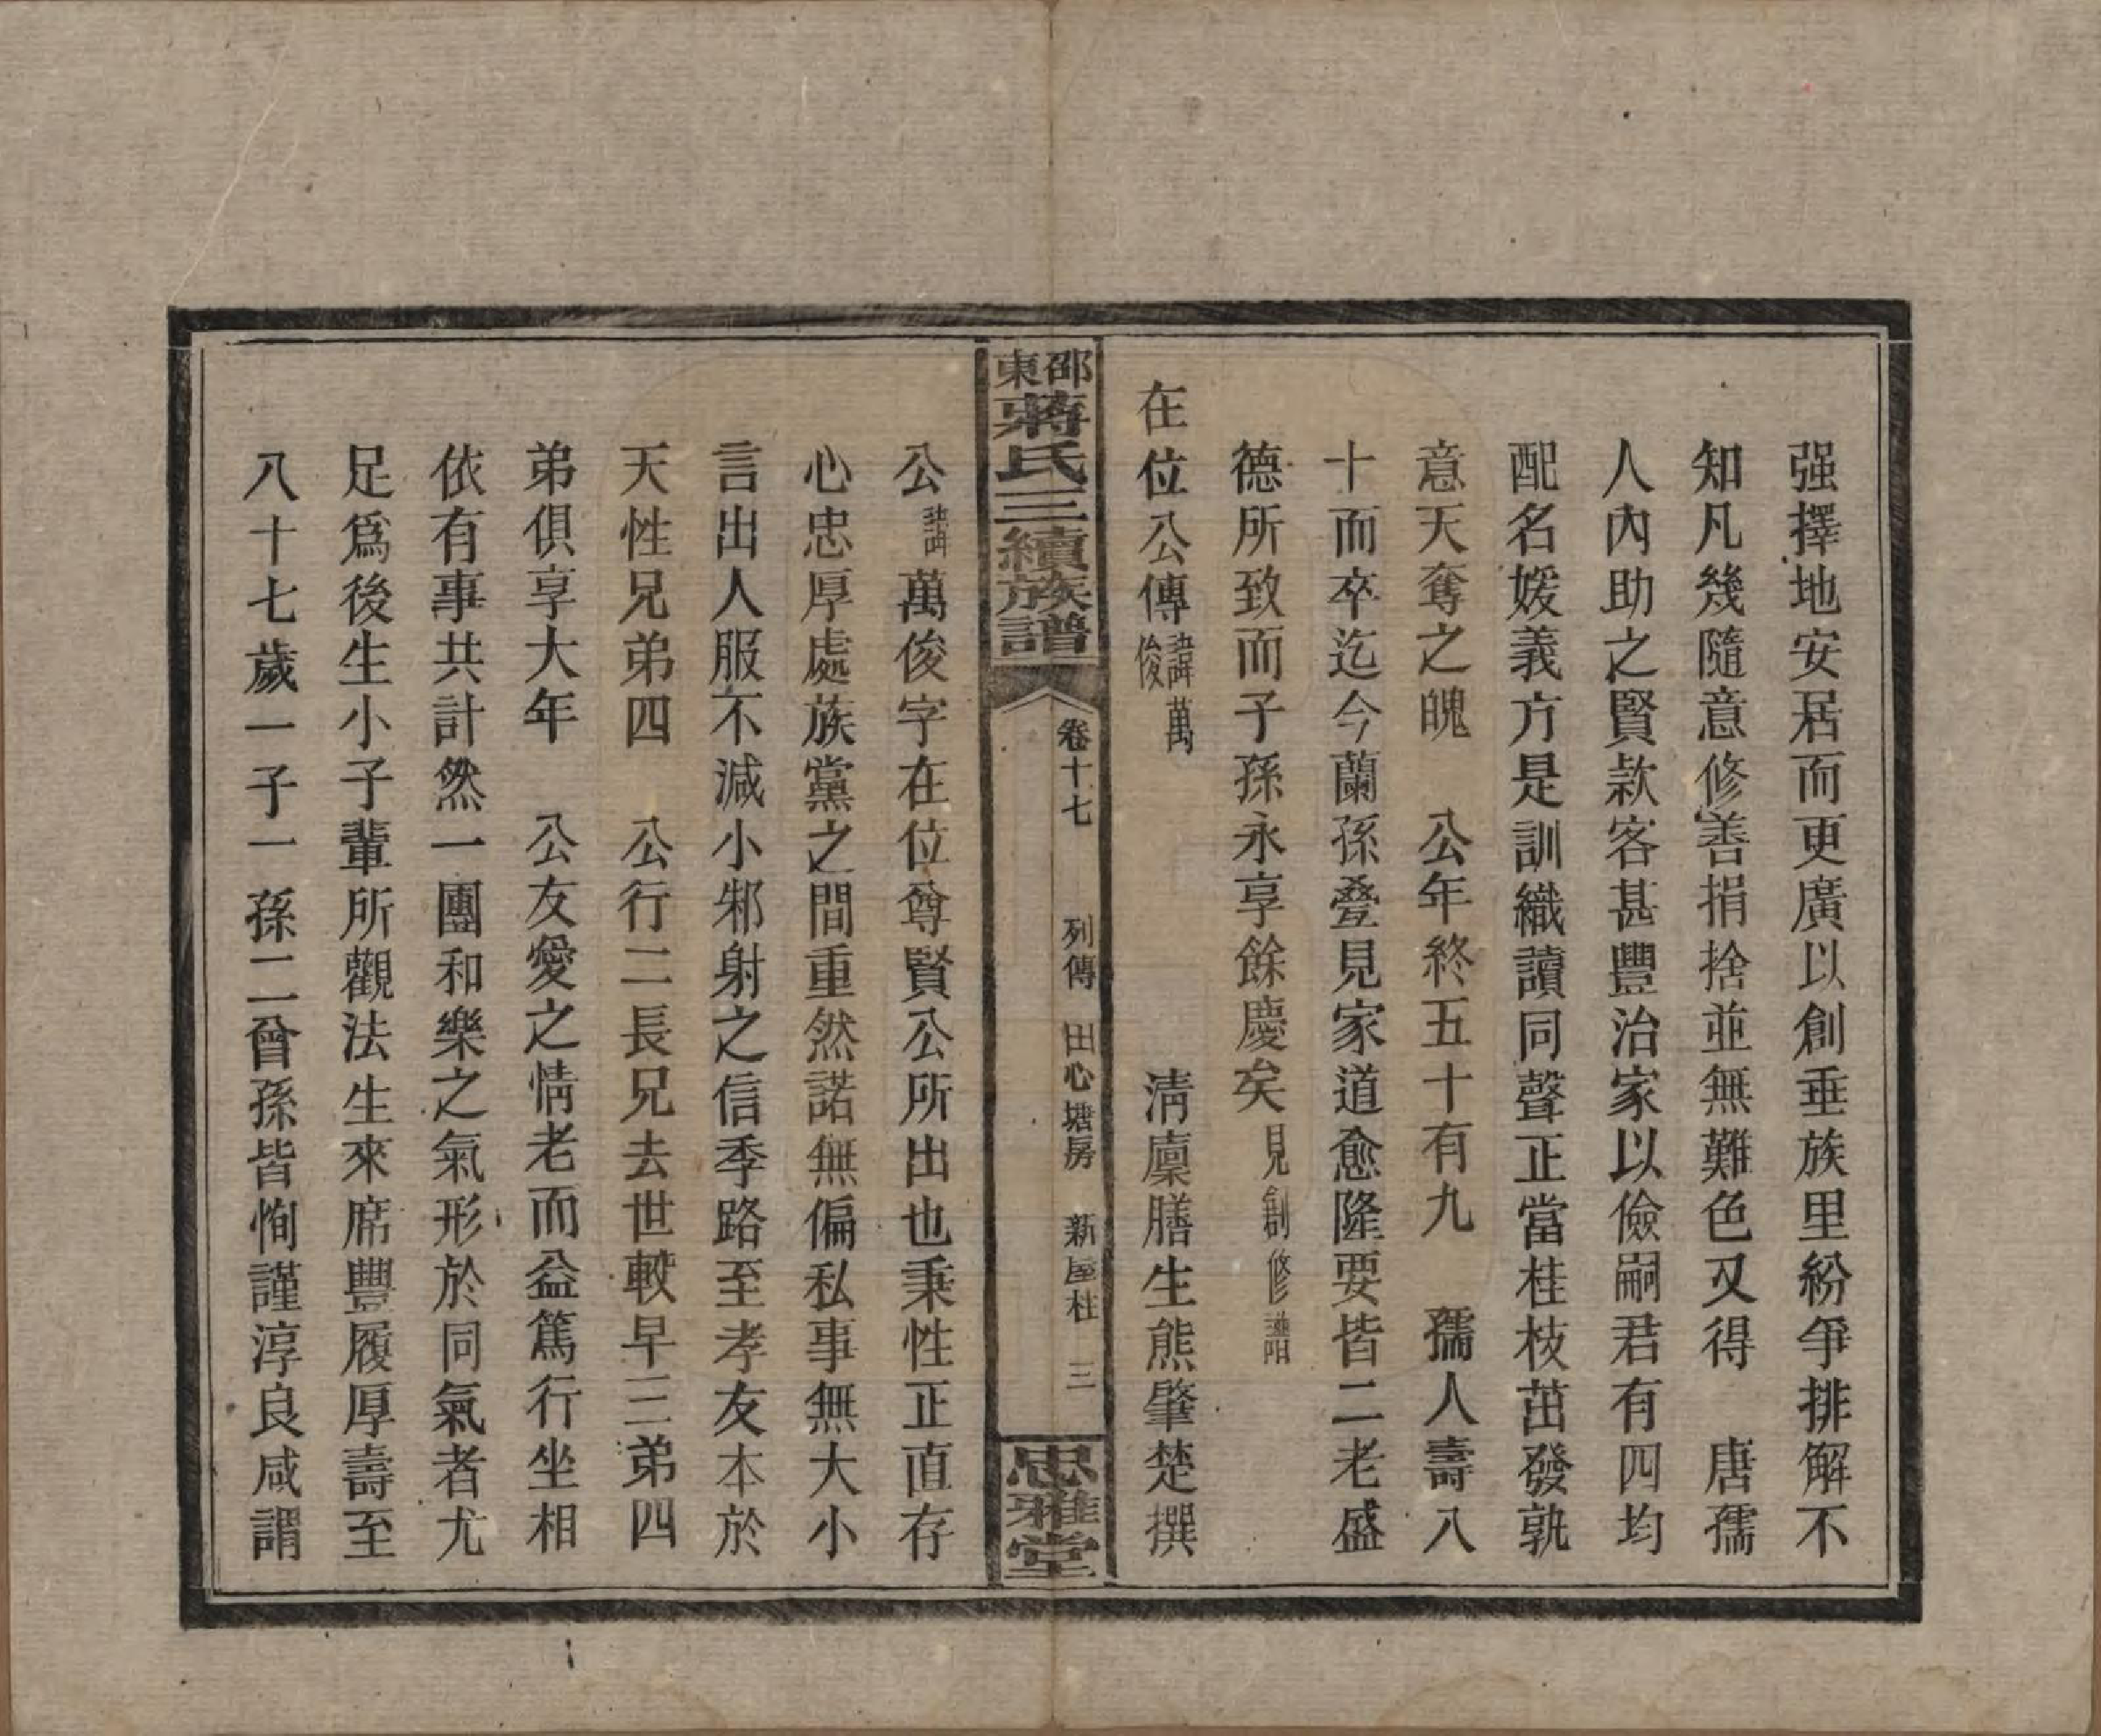 强擇地安居而更廣以創垂族里紛爭排解不
知凡幾隨意修善捐捨並無難色又得　唐孺
人內助之賢款客甚豐治家以儉嗣君有四均
配名媛義方是訓織讀同聲正當桂枝茁發孰
意天奪之魄　公年終五十有九　孺人壽八
十而卒迄今蘭孫叠見家道愈隆要皆二老盛
德所致而子孫永享餘慶矣見創修譜
在位公傳諱萬俊　清廩膳生熊肇楚撰
邵東蔣氏三續族譜　卷十七　列傳　田心塘房　新屋柱　三　忠雅堂
公諱萬俊字在位尊賢公所出也秉性正直存
心忠厚處族黨之間重然諾無偏私事無大小
言出人服不減小邾射之信季路至孝友本於
天性兄弟四　公行二長兄去世較早三弟四
弟俱享大年　公友愛之情老而益篤行坐相
依有事共計然一團和樂之氣形於同氣者尤
足爲後生小子輩所觀法生來席豐履厚壽至
八十七歲一子一孫二曾孫皆恂謹淳良咸謂